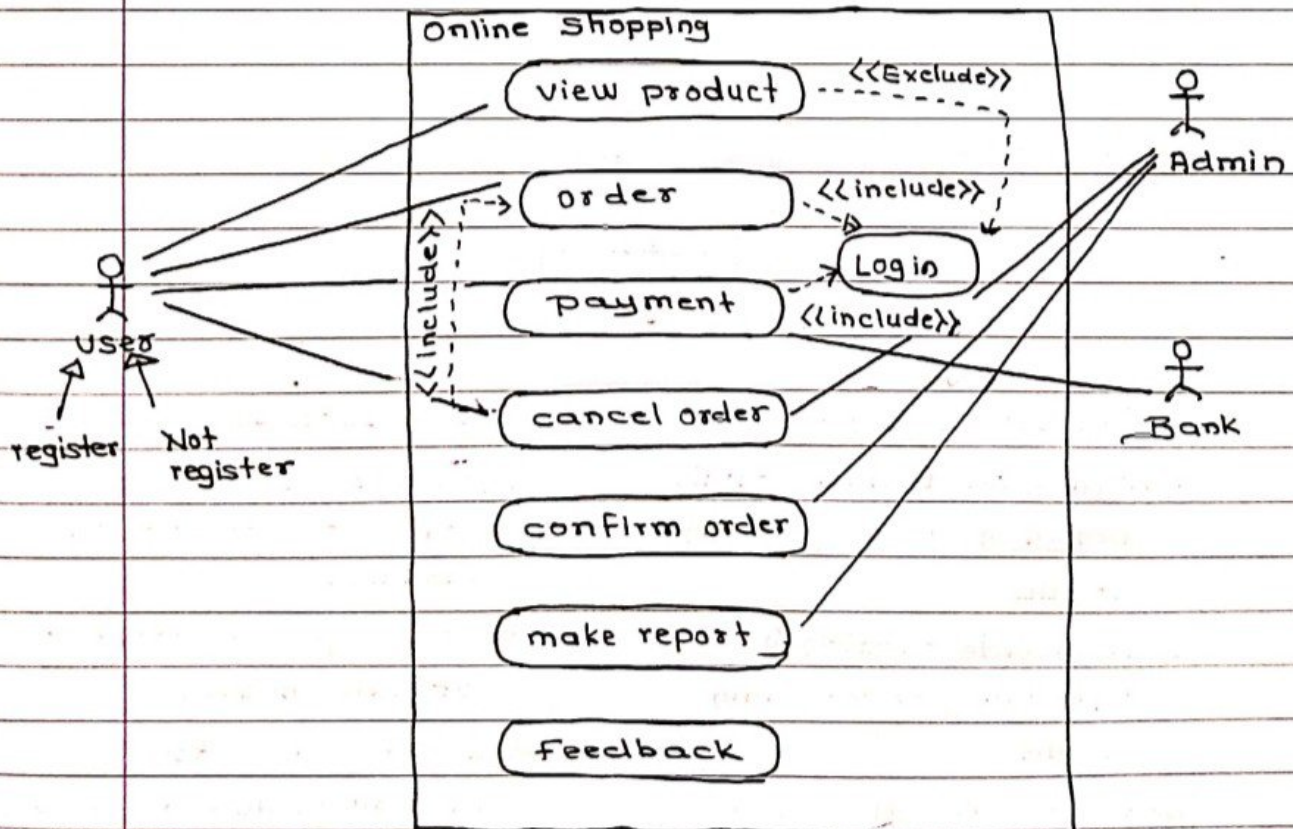 Online Shopping
view product
<<Exclude>>
order
<<include>>
Login
<<include>>
payment
<<include>>
cancel order
confirm order
make report
Feedback
user
register
Not
register
Admin
Bank